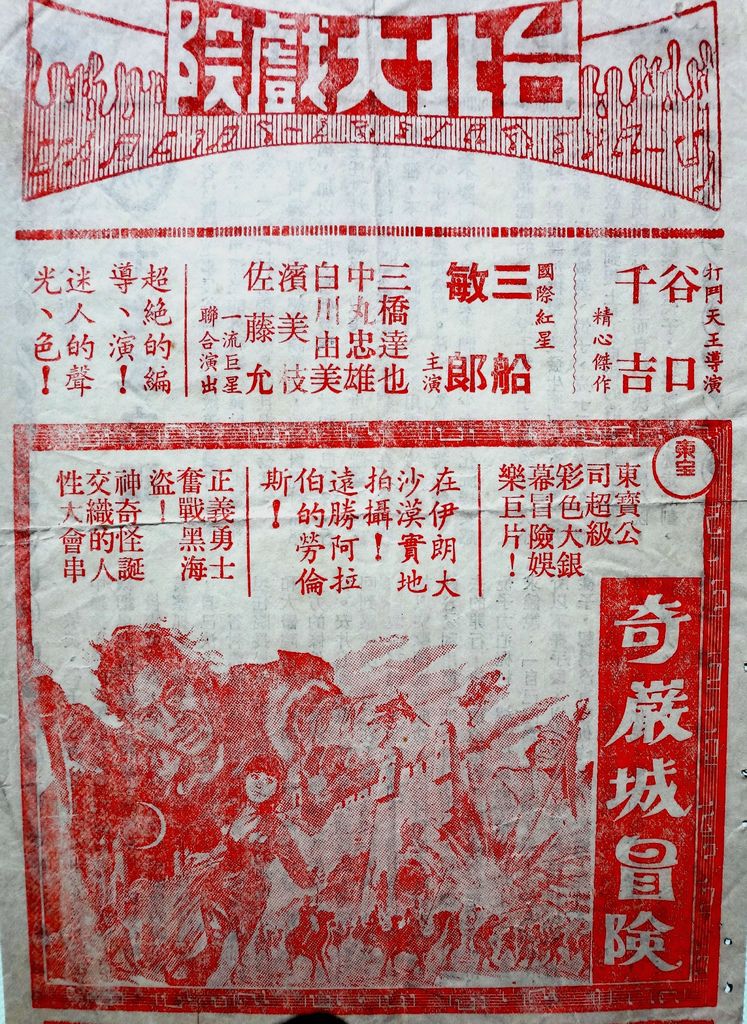 台北大戲院
打鬥天王導演
谷口
千吉
精心傑作
國際紅星
三船
敏郎
主演
三橋達也
中丸忠雄
白川由美
濱美枝
佐藤允
一流巨星
聯合演出
超絶的編
導、演！
迷人的聲
光、色！
東宝
東寶公
司超級
彩色大銀
幕冒險娛
樂巨片！
奇巖城冒険
在伊朗大
沙漠實地
拍攝！
遠勝阿拉
伯的勞倫
斯！
正義勇士
奮戰黑海
盜！
神奇怪誕
交織的人
性大會串